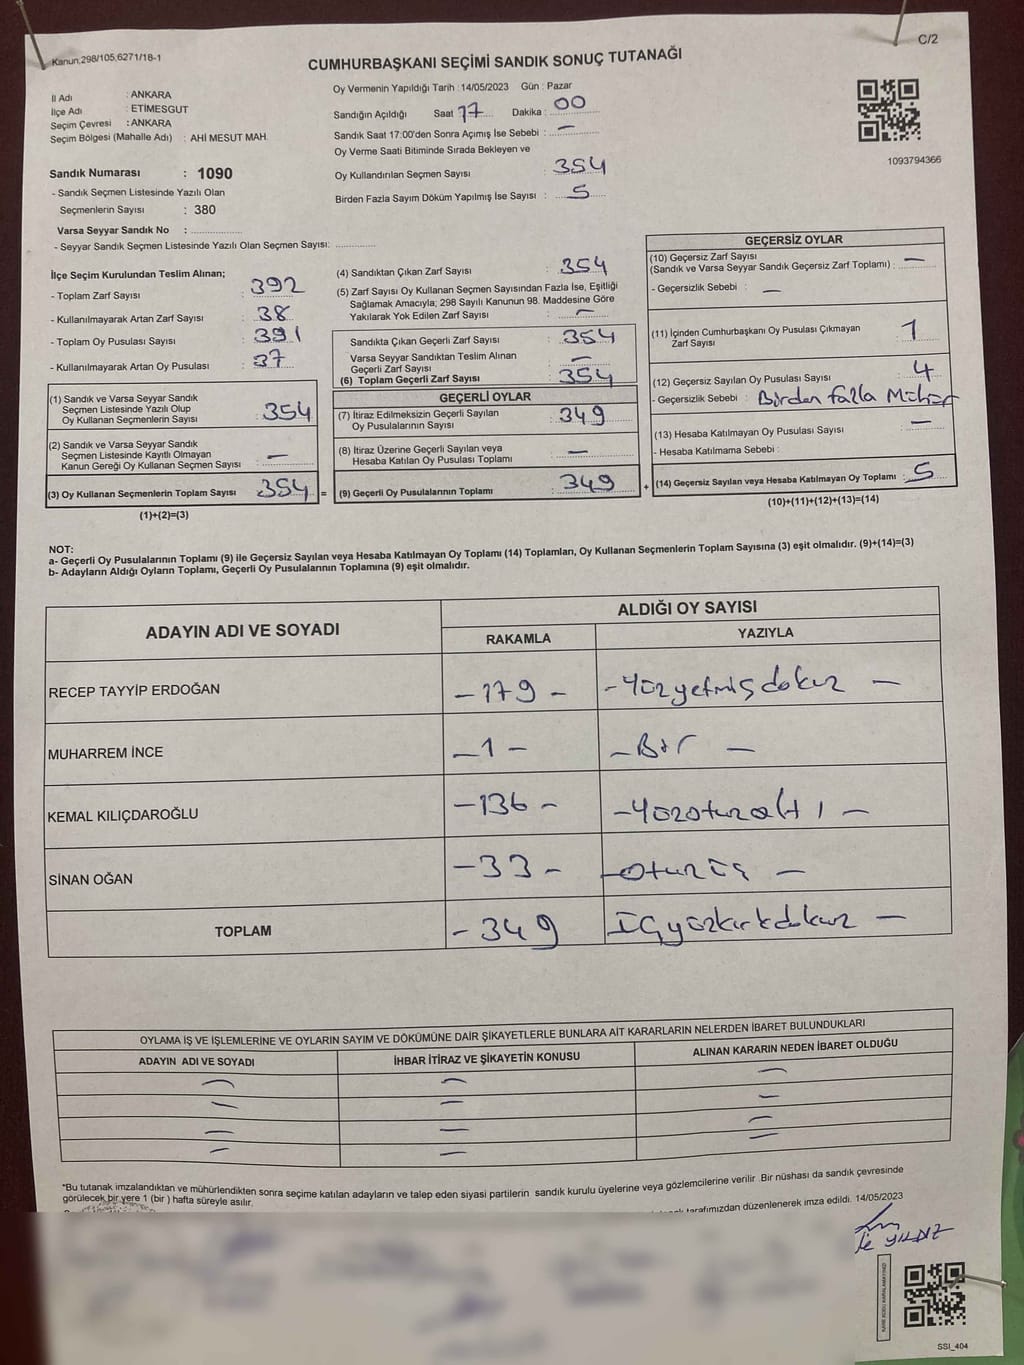 Kanun:298/105,6271/18-1
C/2
CUMHURBAŞKANI SEÇİMİ SANDIK SONUÇ TUTANAĞI
İl Adı : ANKARA
İlçe Adı : ETİMESGUT
Seçim Çevresi : ANKARA
Seçim Bölgesi (Mahalle Adı) : AHİ MESUT MAH.
Sandık Numarası : 1090
- Sandık Seçmen Listesinde Yazılı Olan
Seçmenlerin Sayısı : 380
Varsa Seyyar Sandık No :
- Seyyar Sandık Seçmen Listesinde Yazılı Olan Seçmen Sayısı:
Oy Vermenin Yapıldığı Tarih : 14/05/2023 Gün : Pazar
Sandığın Açıldığı Saat 17 Dakika : 00
Sandık Saat 17:00'den Sonra Açımış İse Sebebi : —
Oy Verme Saati Bitiminde Sırada Bekleyen ve
Oy Kullandırılan Seçmen Sayısı : 354
Birden Fazla Sayım Döküm Yapılmış İse Sayısı : 5
1093794366
İlçe Seçim Kurulundan Teslim Alınan;
- Toplam Zarf Sayısı : 392
- Kullanılmayarak Artan Zarf Sayısı : 38
- Toplam Oy Pusulası Sayısı : 391
- Kullanılmayarak Artan Oy Pusulası : 37
(1) Sandık ve Varsa Seyyar Sandık
Seçmen Listesinde Yazılı Olup
Oy Kullanan Seçmenlerin Sayısı : 354
(2) Sandık ve Varsa Seyyar Sandık
Seçmen Listesinde Kayıtlı Olmayan
Kanun Gereği Oy Kullanan Seçmen Sayısı : —
(3) Oy Kullanan Seçmenlerin Toplam Sayısı : 354 =
(1)+(2)=(3)
(4) Sandıktan Çıkan Zarf Sayısı : 354
(5) Zarf Sayısı Oy Kullanan Seçmen Sayısından Fazla İse, Eşitliği
Sağlamak Amacıyla; 298 Sayılı Kanunun 98. Maddesine Göre
Yakılarak Yok Edilen Zarf Sayısı : —
Sandıkta Çıkan Geçerli Zarf Sayısı : 354
Varsa Seyyar Sandıktan Teslim Alınan
Geçerli Zarf Sayısı : —
(6) Toplam Geçerli Zarf Sayısı : 354
GEÇERLİ OYLAR
(7) İtiraz Edilmeksizin Geçerli Sayılan
Oy Pusulalarının Sayısı : 349
(8) İtiraz Üzerine Geçerli Sayılan veya
Hesaba Katılan Oy Pusulası Toplamı : —
(9) Geçerli Oy Pusulalarının Toplamı : 349 +
GEÇERSİZ OYLAR
(10) Geçersiz Zarf Sayısı
(Sandık ve Varsa Seyyar Sandık Geçersiz Zarf Toplamı) : —
- Geçersizlik Sebebi : —
(11) İçinden Cumhurbaşkanı Oy Pusulası Çıkmayan
Zarf Sayısı : 1
(12) Geçersiz Sayılan Oy Pusulası Sayısı : 4
- Geçersizlik Sebebi : Birden fazla Mühür
(13) Hesaba Katılmayan Oy Pusulası Sayısı : —
- Hesaba Katılmama Sebebi :
(14) Geçersiz Sayılan veya Hesaba Katılmayan Oy Toplamı : 5
(10)+(11)+(12)+(13)=(14)
NOT:
a- Geçerli Oy Pusulalarının Toplamı (9) ile Geçersiz Sayılan veya Hesaba Katılmayan Oy Toplamı (14) Toplamları, Oy Kullanan Seçmenlerin Toplam Sayısına (3) eşit olmalıdır. (9)+(14)=(3)
b- Adayların Aldığı Oyların Toplamı, Geçerli Oy Pusulalarının Toplamına (9) eşit olmalıdır.
ADAYIN ADI VE SOYADI
ALDIĞI OY SAYISI
RAKAMLA YAZIYLA
RECEP TAYYİP ERDOĞAN -179- -Yüzyetmişdokuz-
MUHARREM İNCE -1- -Bir-
KEMAL KILIÇDAROĞLU -136- -Yüzotuzaltı-
SİNAN OĞAN -33- -otuzüç-
TOPLAM -349 Üçyüzkırkdokuz-
OYLAMA İŞ VE İŞLEMLERİNE VE OYLARIN SAYIM VE DÖKÜMÜNE DAİR ŞİKAYETLERLE BUNLARA AİT KARARLARIN NELERDEN İBARET BULUNDUKLARI
ADAYIN ADI VE SOYADI İHBAR İTİRAZ VE ŞİKAYETİN KONUSU ALINAN KARARIN NEDEN İBARET OLDUĞU
— — —
— — —
— — —
— — —
*Bu tutanak imzalandıktan ve mühürlendikten sonra seçime katılan adayların ve talep eden siyasi partilerin sandık kurulu üyelerine veya gözlemcilerine verilir .Bir nüshası da sandık çevresinde
görülecek bir yere 1 (bir ) hafta süreyle asılır.
tarafımızdan düzenlenerek imza edildi. 14/05/2023
YILDIZ
SSI_404